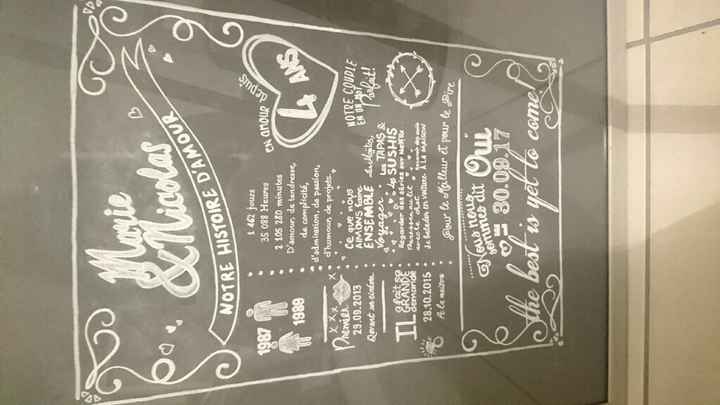 Marie
& Nicolas
NOTRE HISTOIRE D'AMOUR
1987
1989
1 462 jours
35 088 Heures
2 105 280 minutes
D'amour, de tendresse,
de complicité,
d'admiration, de passion,
d'humour, de projets...
EN amour
depuis
4 ANS
Premier
29.09.2013
Devant un cinéma
Ce que nous
AIMONS faire
ENSEMBLE
Voyager
Les TAPAS &
les SUSHIS
Regarder des séries sur
avec le chat
se balader en voiture
À LA MAISON
NOTRE COUPLE
EN UN MOT
Parfait!
IL a fait sa
GRANDE
demande
28.10.2015
À la maison
Pour le Meilleur et pour le Pire
Nous nous
sommes dit Oui
30.09.17
the best is yet to come!